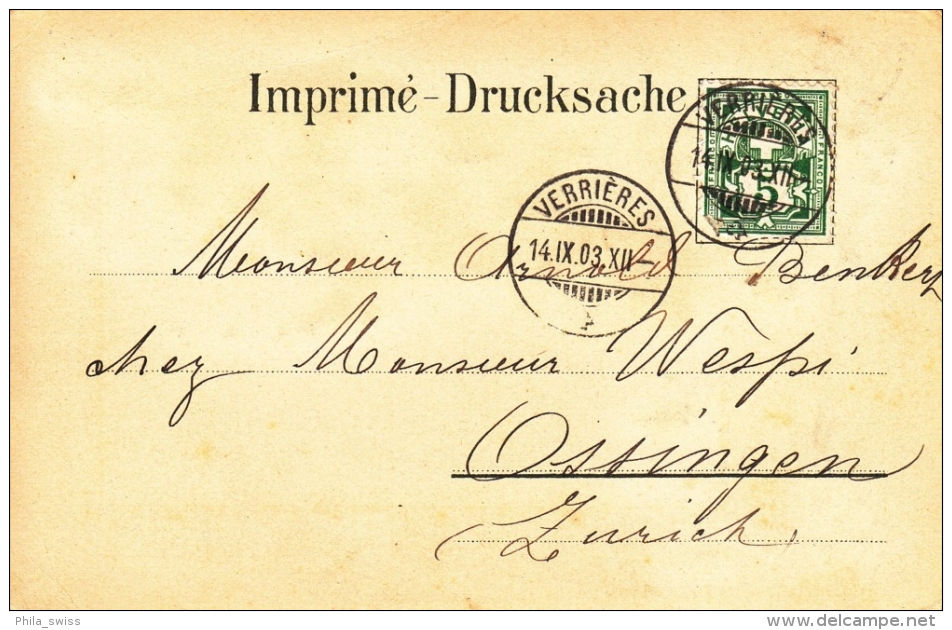 Imprimé - Drucksache
VERRIÈRES
14.IX.03.XII
FRANCO
5
VERRIÈRES
14.IX.03.XII—
Monsieur Arnold
chez Monsieur Wespi
Ossingen
Zurich
Phila_swiss
delcampe.net